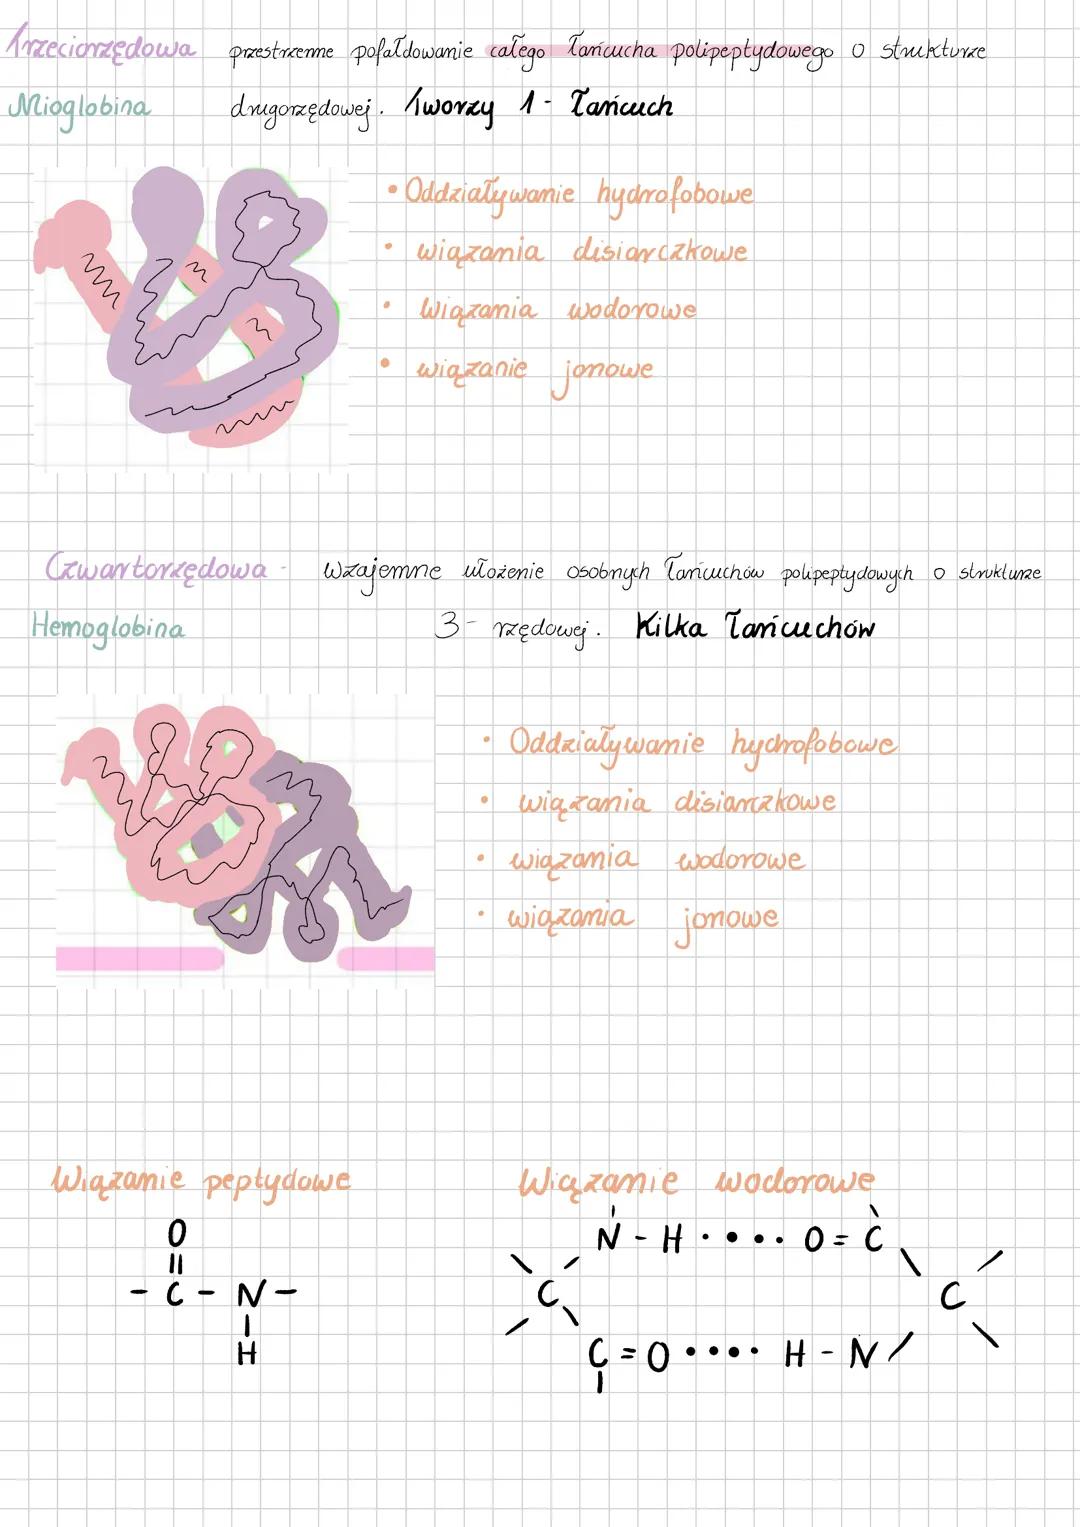 Trzeciorzędowa przestrzenne pofałdowanie całego łańcucha polipeptydowego o strukturze
Mioglobina drugorzędowej. Tworzy 1 - łańcuch
• Oddziaływanie hydrofobowe
• wiązania disiarczkowe
• Wiązania wodorowe
• wiązanie jonowe
Czwartorzędowa - Wzajemne ułożenie osobnych łańcuchów polipeptydowych o strukturze
Hemoglobina 3 - rzędowej. Kilka łańcuchów
• Oddziaływanie hydrofobowe
• wiązania disiarczkowe
• wiązania wodorowe
• wiązania jonowe
Wiązanie peptydowe Wiązanie wodorowe
O
- C - N -
H
N - H •••• O = C
C C
C = O •••• H - N